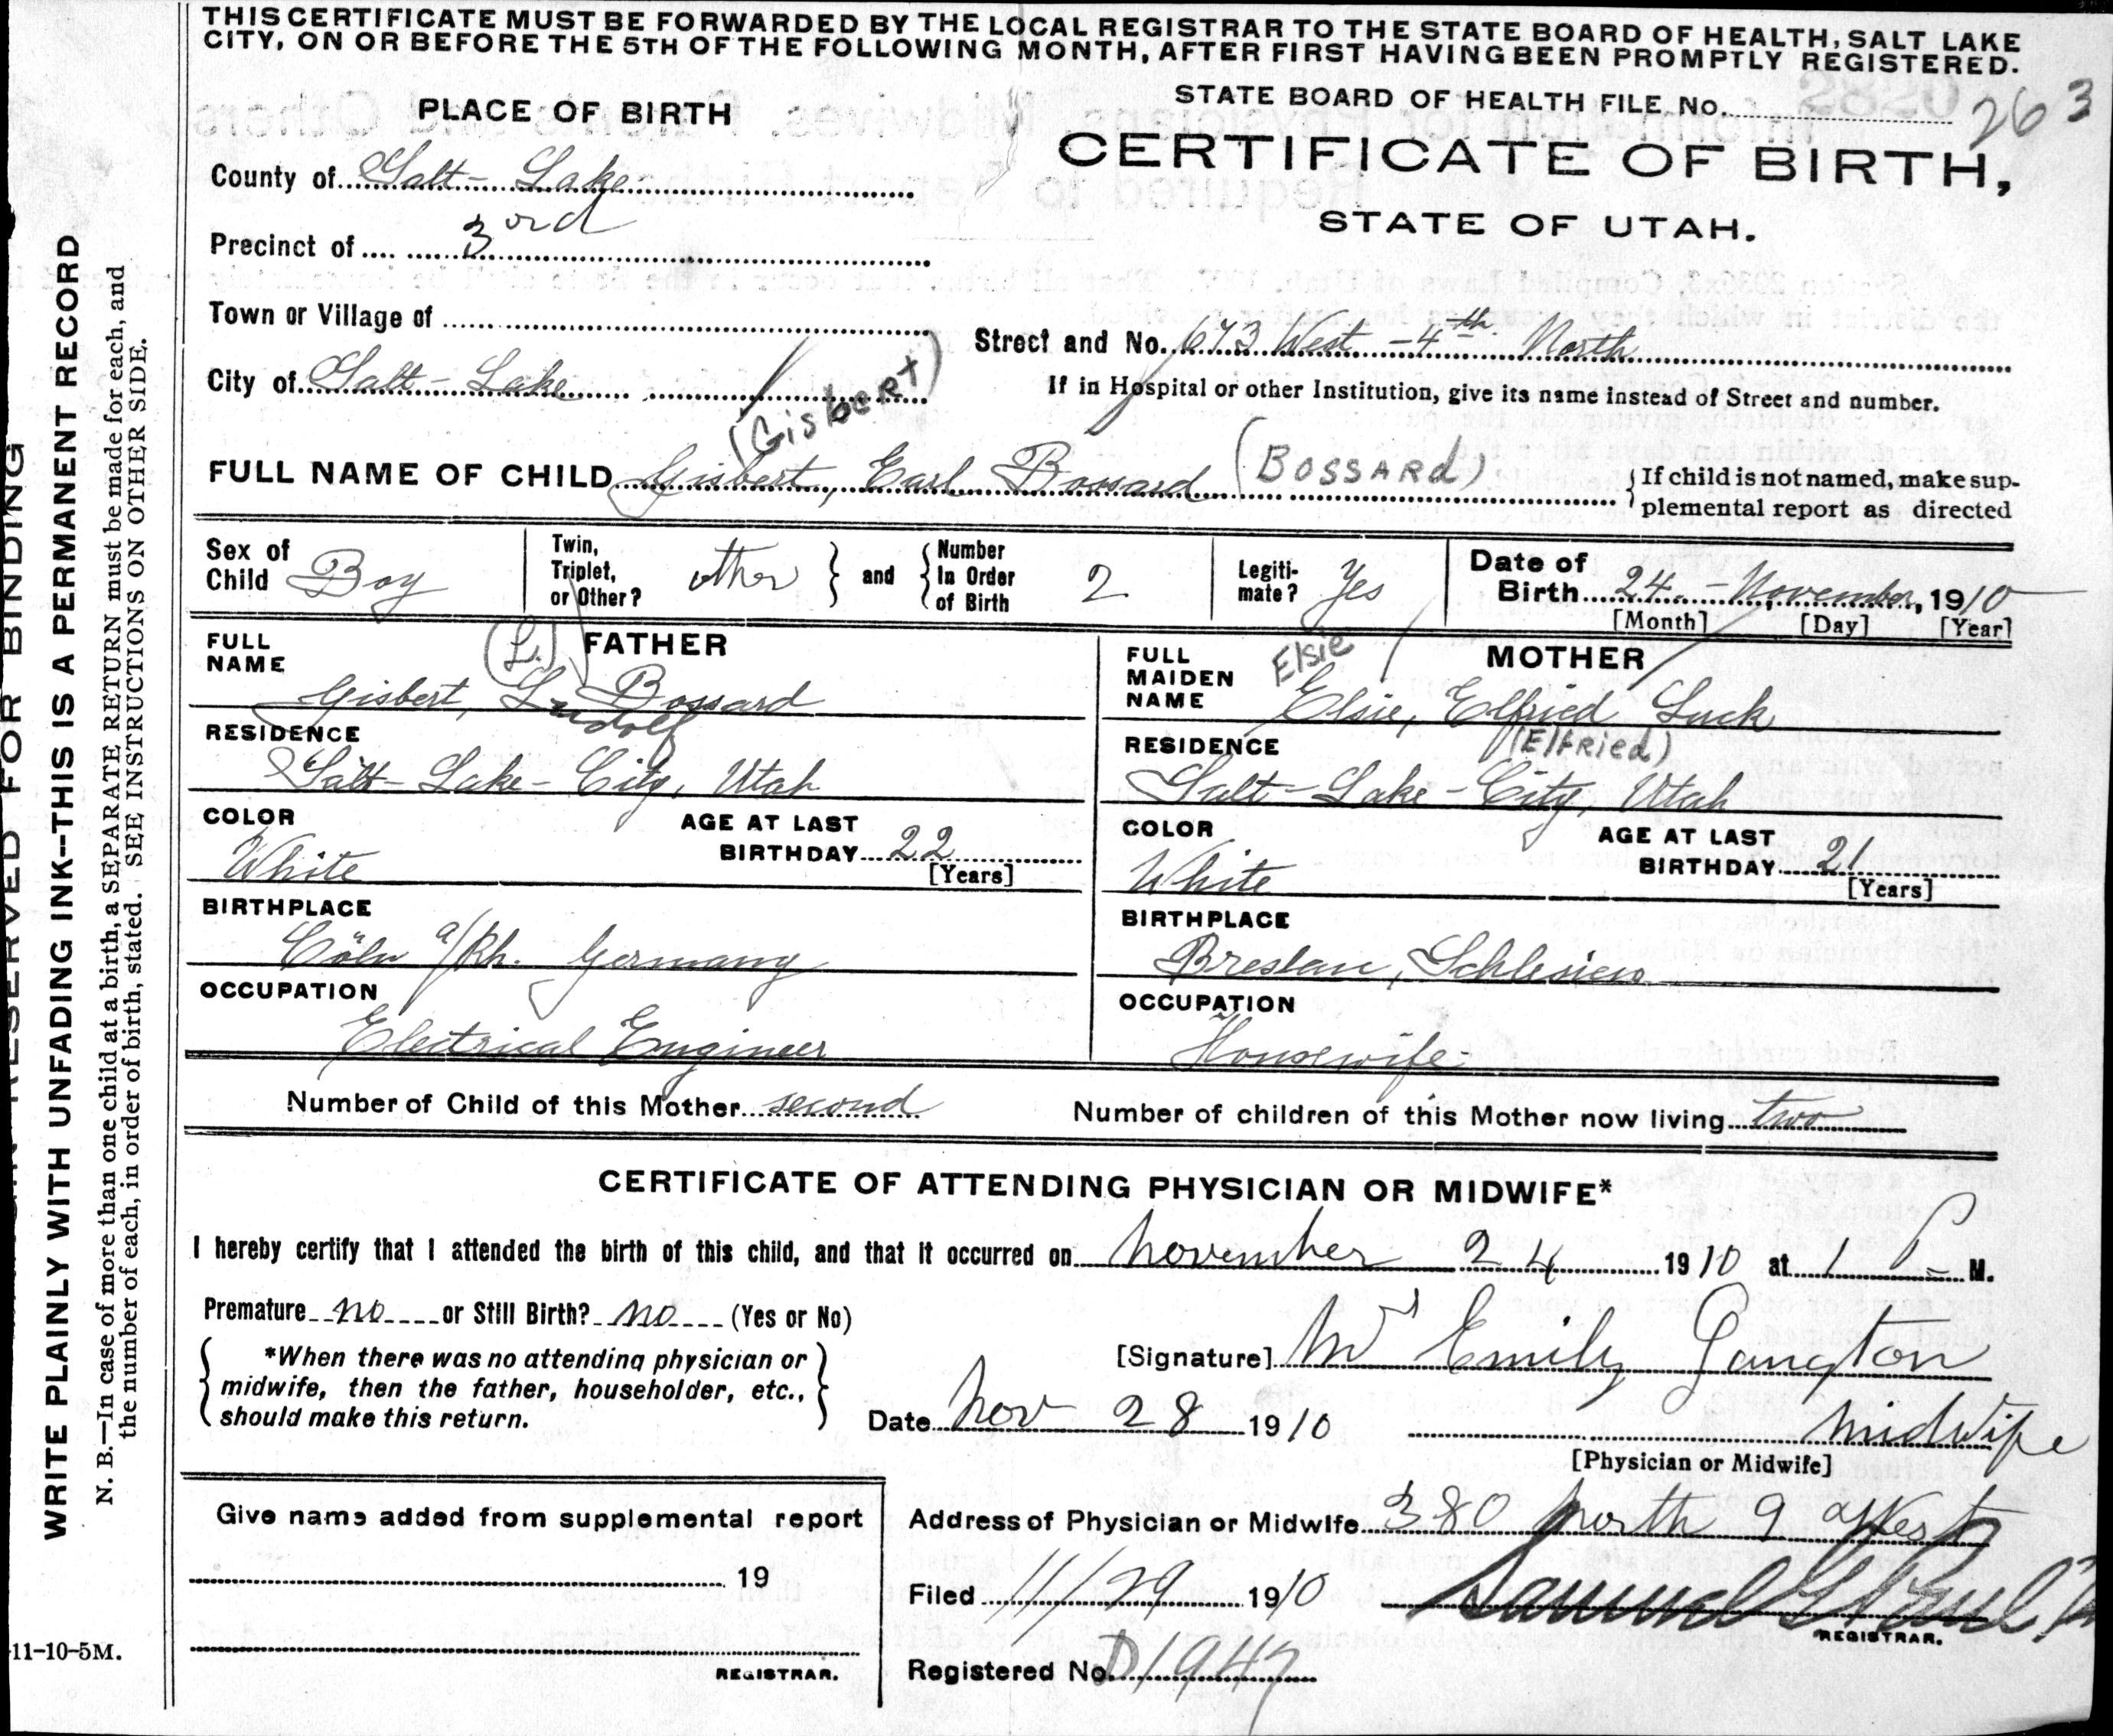 THIS CERTIFICATE MUST BE FORWARDED BY THE LOCAL REGISTRAR TO THE STATE BOARD OF HEALTH, SALT LAKE
CITY, ON OR BEFORE THE 5TH OF THE FOLLOWING MONTH, AFTER FIRST HAVING BEEN PROMPTLY REGISTERED.
STATE BOARD OF HEALTH FILE No. 263
PLACE OF BIRTH
CERTIFICATE OF BIRTH,
STATE OF UTAH.
County of Salt-Lake
Precinct of 3rd
Town or Village of
Street and No. 673 West-4th North
City of Salt-Lake
If in Hospital or other Institution, give its name instead of Street and number.
(Gisbert)
FULL NAME OF CHILD Gisbert, Earl Bossard (BOSSARd)
If child is not named, make sup-
plemental report as directed
Sex of Child Boy
Twin, Triplet, or Other? other and Number In Order of Birth 2
Legiti-mate? Yes
Date of Birth 24-November, 1910
[Month] [Day] [Year]
FATHER
FULL NAME (L.)
Gisbert, L. Bossard
Ludolf
RESIDENCE
Salt-Lake-City, Utah
COLOR
White
AGE AT LAST BIRTHDAY 22
[Years]
BIRTHPLACE
Cöln a/Rh. Germany
OCCUPATION
Electrical Engineer
MOTHER
FULL MAIDEN NAME Elsie
Elsie, Elfried Luck
(Elfried)
RESIDENCE
Salt-Lake-City, Utah
COLOR
White
AGE AT LAST BIRTHDAY 21
[Years]
BIRTHPLACE
Breslau, Schlesien
OCCUPATION
Housewife-
Number of Child of this Mother second
Number of children of this Mother now living two
CERTIFICATE OF ATTENDING PHYSICIAN OR MIDWIFE*
I hereby certify that I attended the birth of this child, and that it occurred on November 24 1910 at 1 P M.
Premature no or Still Birth? no (Yes or No)
*When there was no attending physician or
midwife, then the father, householder, etc.,
should make this return.
[Signature] Mrs Emily Langton
Date Nov 28 1910
Midwife
[Physician or Midwife]
Give name added from supplemental report
19
REGISTRAR.
Address of Physician or Midwife 380 North 9 West
Filed 11/29 1910
Samuel G. Paul
REGISTRAR.
Registered No. D1947
11-10-5M.
RESERVED FOR BINDING
WRITE PLAINLY WITH UNFADING INK--THIS IS A PERMANENT RECORD
N. B.—In case of more than one child at a birth, a SEPARATE RETURN must be made for each, and
the number of each, in order of birth, stated. SEE INSTRUCTIONS ON OTHER SIDE.